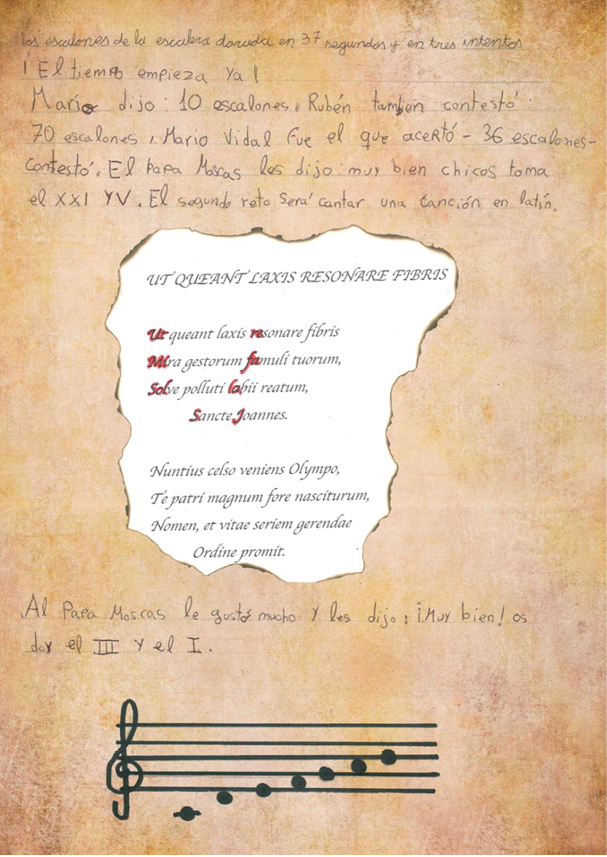 los escalones de la escalera dorada en 37 segundos y en tres intentos
¡El tiempo empieza ya!
Mario dijo: 10 escalones, Rubén tambien contestó:
70 escalones, Mario Vidal fue el que acertó - 36 escalones-
contestó. El Papa Moscas les dijo: muy bien chicos toma
el XXI Y V. El segundo reto será cantar una canción en latín.
UT QUEANT LAXIS RESONARE FIBRIS
Ut queant laxis resonare fibris
MIra gestorum famuli tuorum,
Solve polluti labii reatum,
Sancte Joannes.
Nuntius celso veniens Olympo,
Te patri magnum fore nasciturum,
Nomen, et vitae seriem gerendae
Ordine promit.
Al Papa Moscas le gustó mucho y les dijo: ¡Muy bien! os
doy el III y el I.